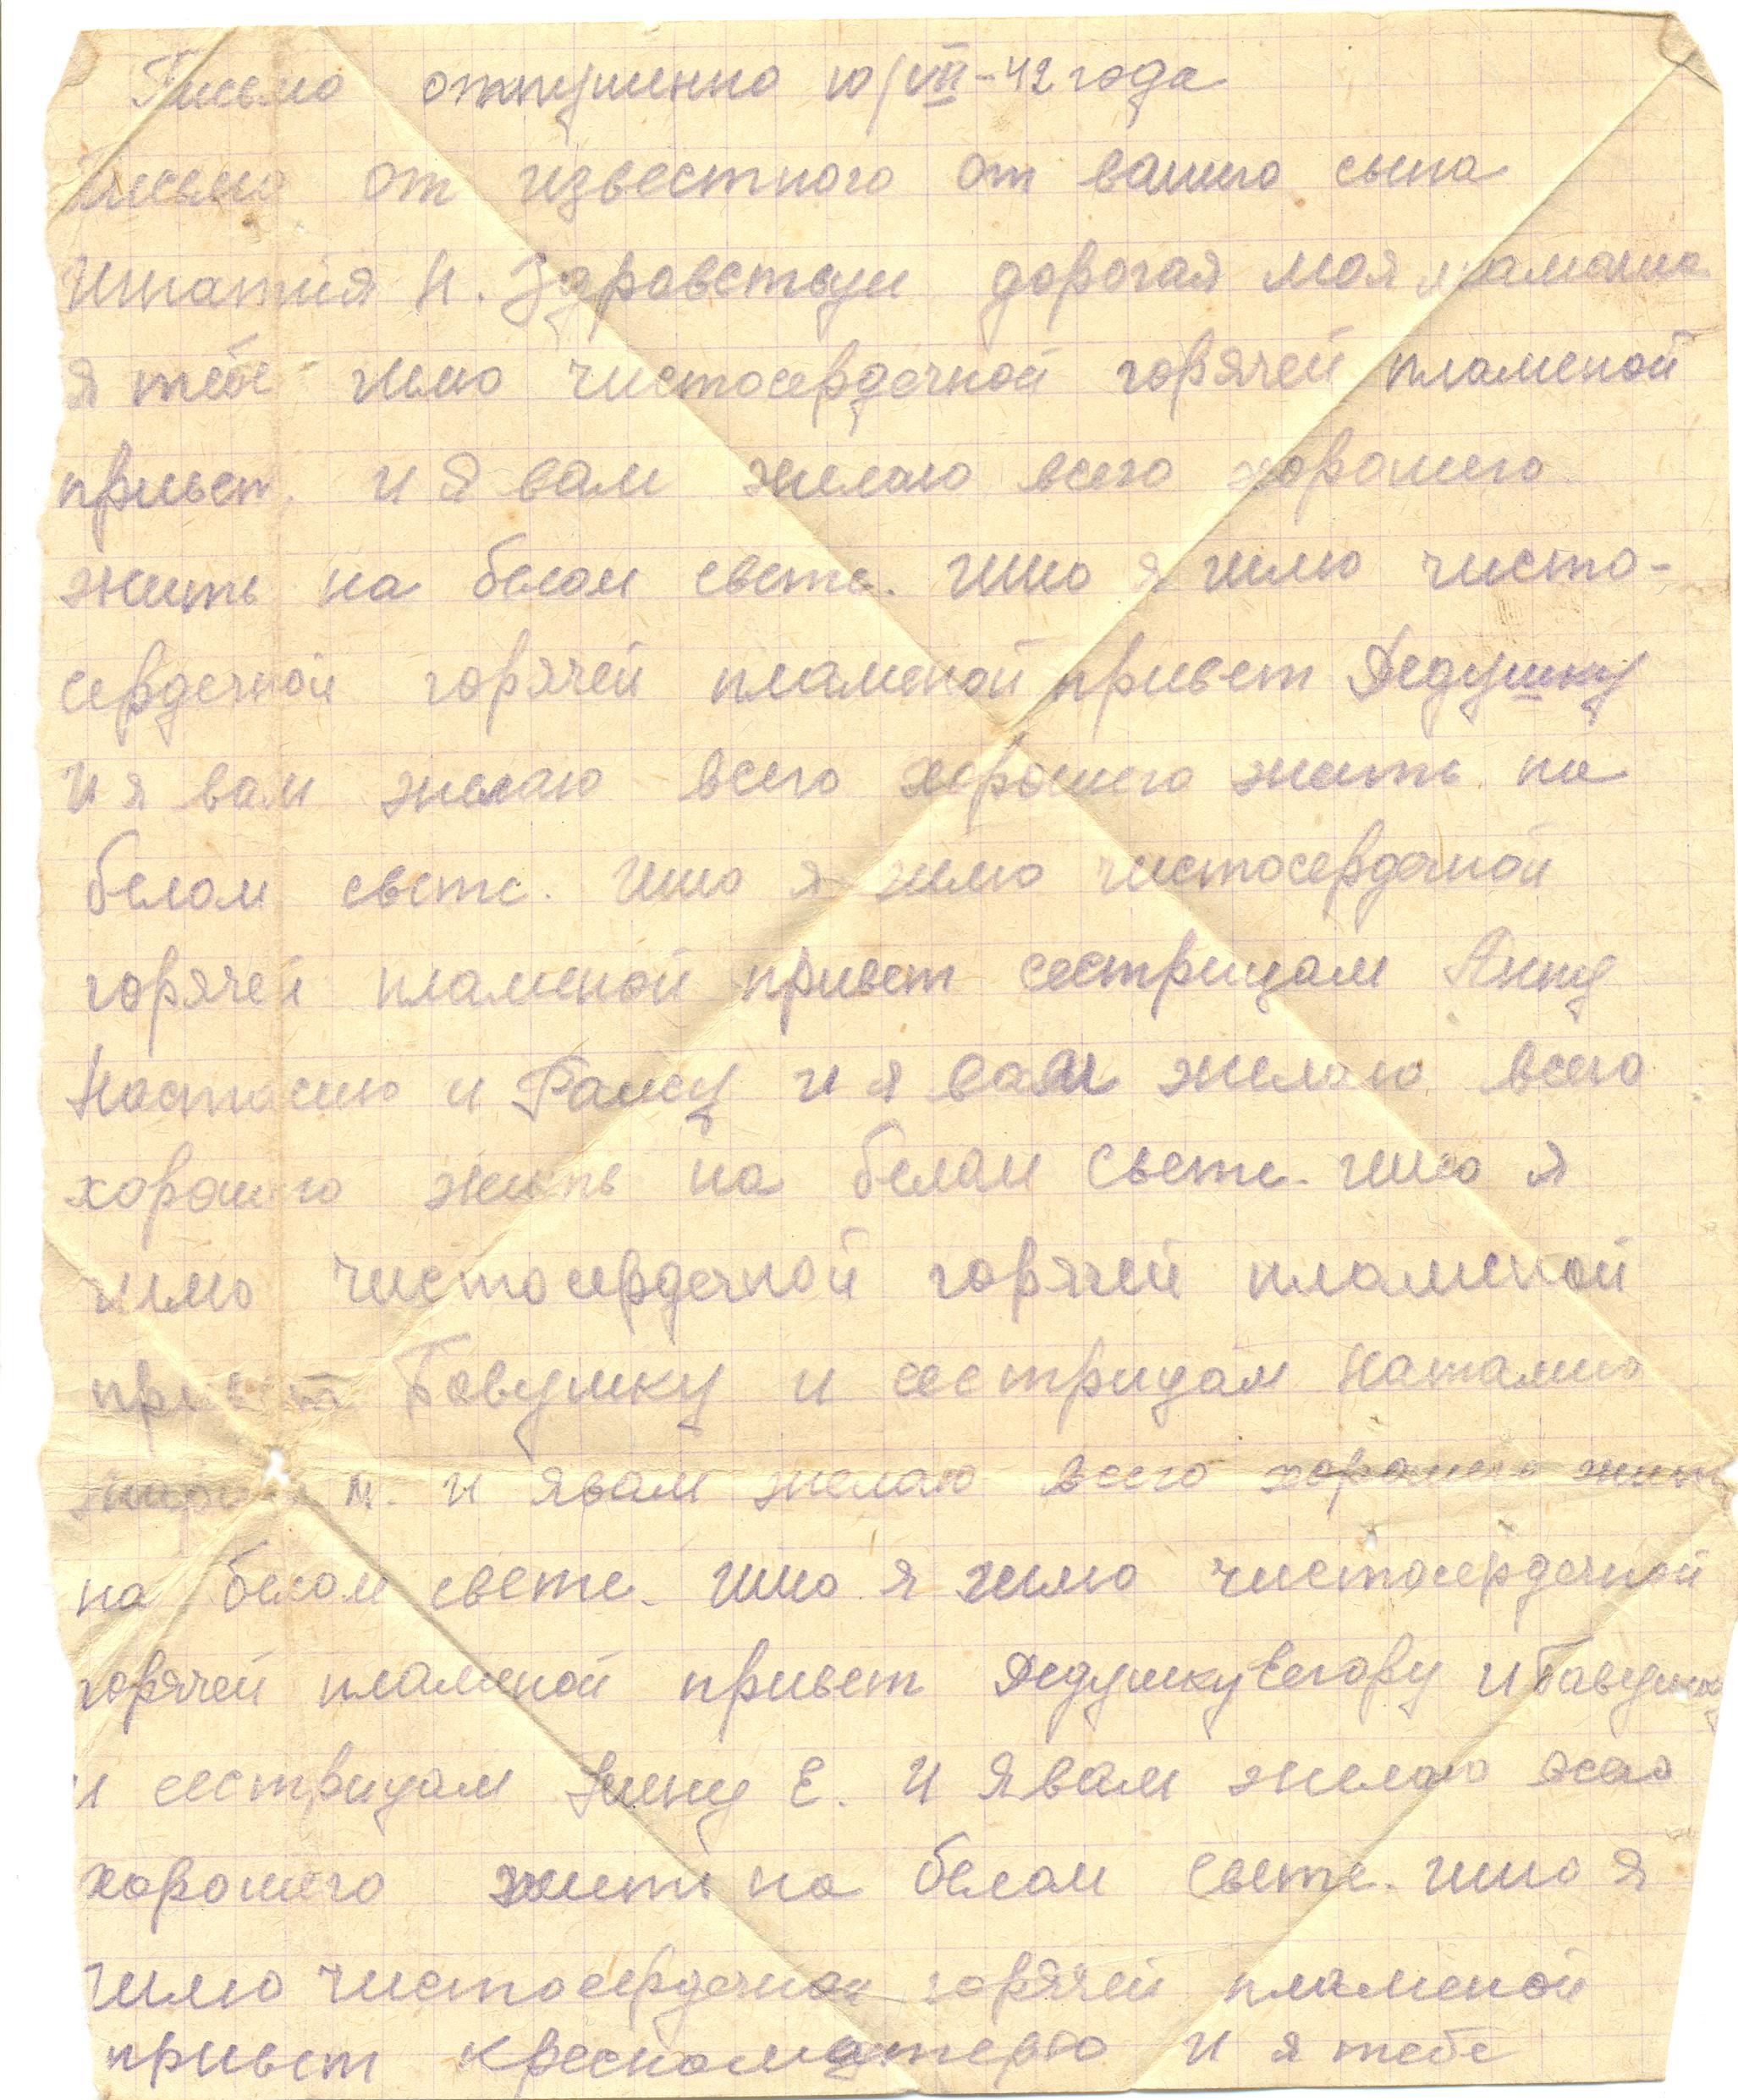 Письмо отпушенно 10/VII-42 года
Письмо от известного от вашего сына
Игнатия Н. Здравствуи дорогая моя мамаша
я тебе шлю чистосердечной горячей пламеной
привет. и я вам желаю всего хорошего
жить на белом свете. ишо я шлю чисто-
сердечной горячей пламеной привет Дедушку
и я вам желаю всего хорошего жить на
белом свете. ишо я шлю чистосердечной
горячей пламеной привет сестрицам Анну
Настасию и Раису и я вам желаю всего
хорошего жить на белом свете. ишо я
шлю чистосердечной горячей пламеной
привет Бавушку и сестрицам Наталию
М. и я вам желаю всего хорошего жить
на белом свете. ишо я шлю чистосердечной
горячей пламеной привет Дедушку Егору и Бавушку
и сестрицам Зину Е. и я вам желаю всего
хорошего жить на белом свете. ишо я
шлю чистосердечной горячей пламеной
привет кресноматерю и я тебе